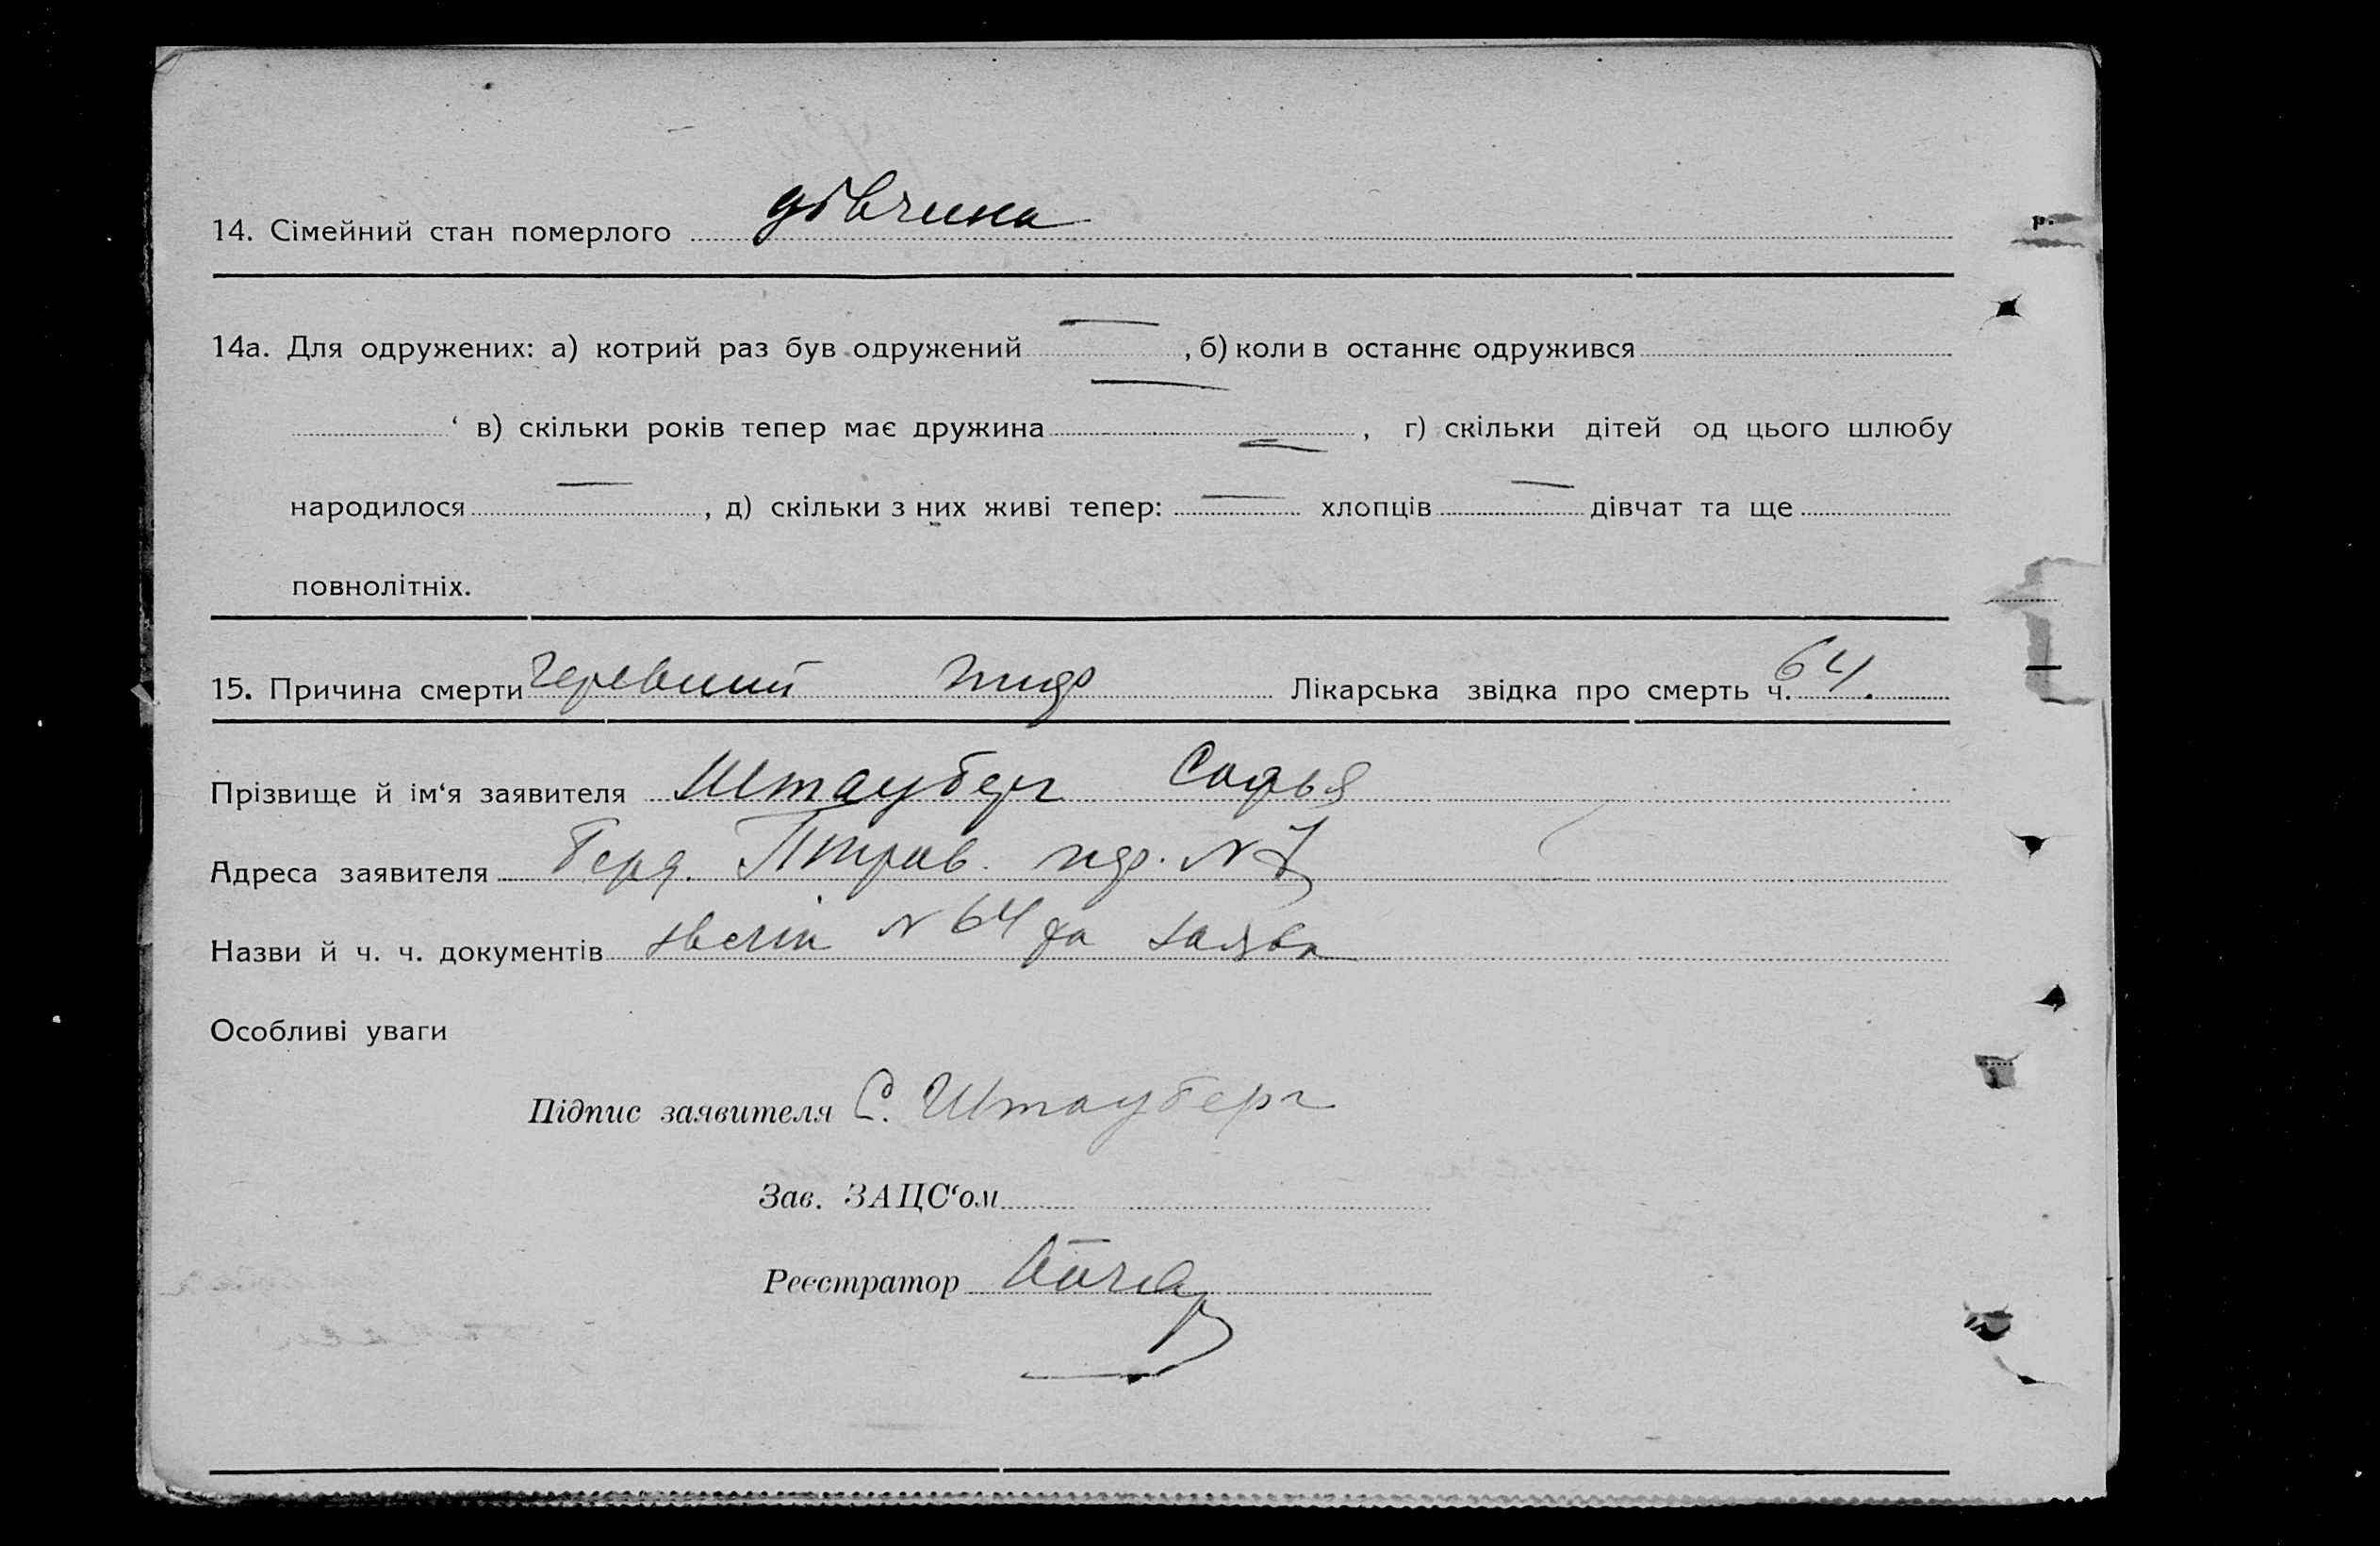 14. Сімейний стан померлого дівчина
р.
14а. Для одружених: а) котрий раз був одружений — , б) коли в останнє одружився
‘ в) скільки років тепер має дружина — , г) скільки дітей од цього шлюбу
народилося — , д) скільки з них живі тепер: — хлопців — дівчат та ще
повнолітніх.
15. Причина смерти черевний тиф Лікарська звідка про смерть ч. 64.
Прізвище й ім‘я заявителя Штауберг Софья
Адреса заявителя Берд. №7
Назви й ч. ч. документів № 64 та заява
Особливі уваги
Підпис заявителя С. Штауберг
Зав. ЗАЦС‘ом
Реєстратор